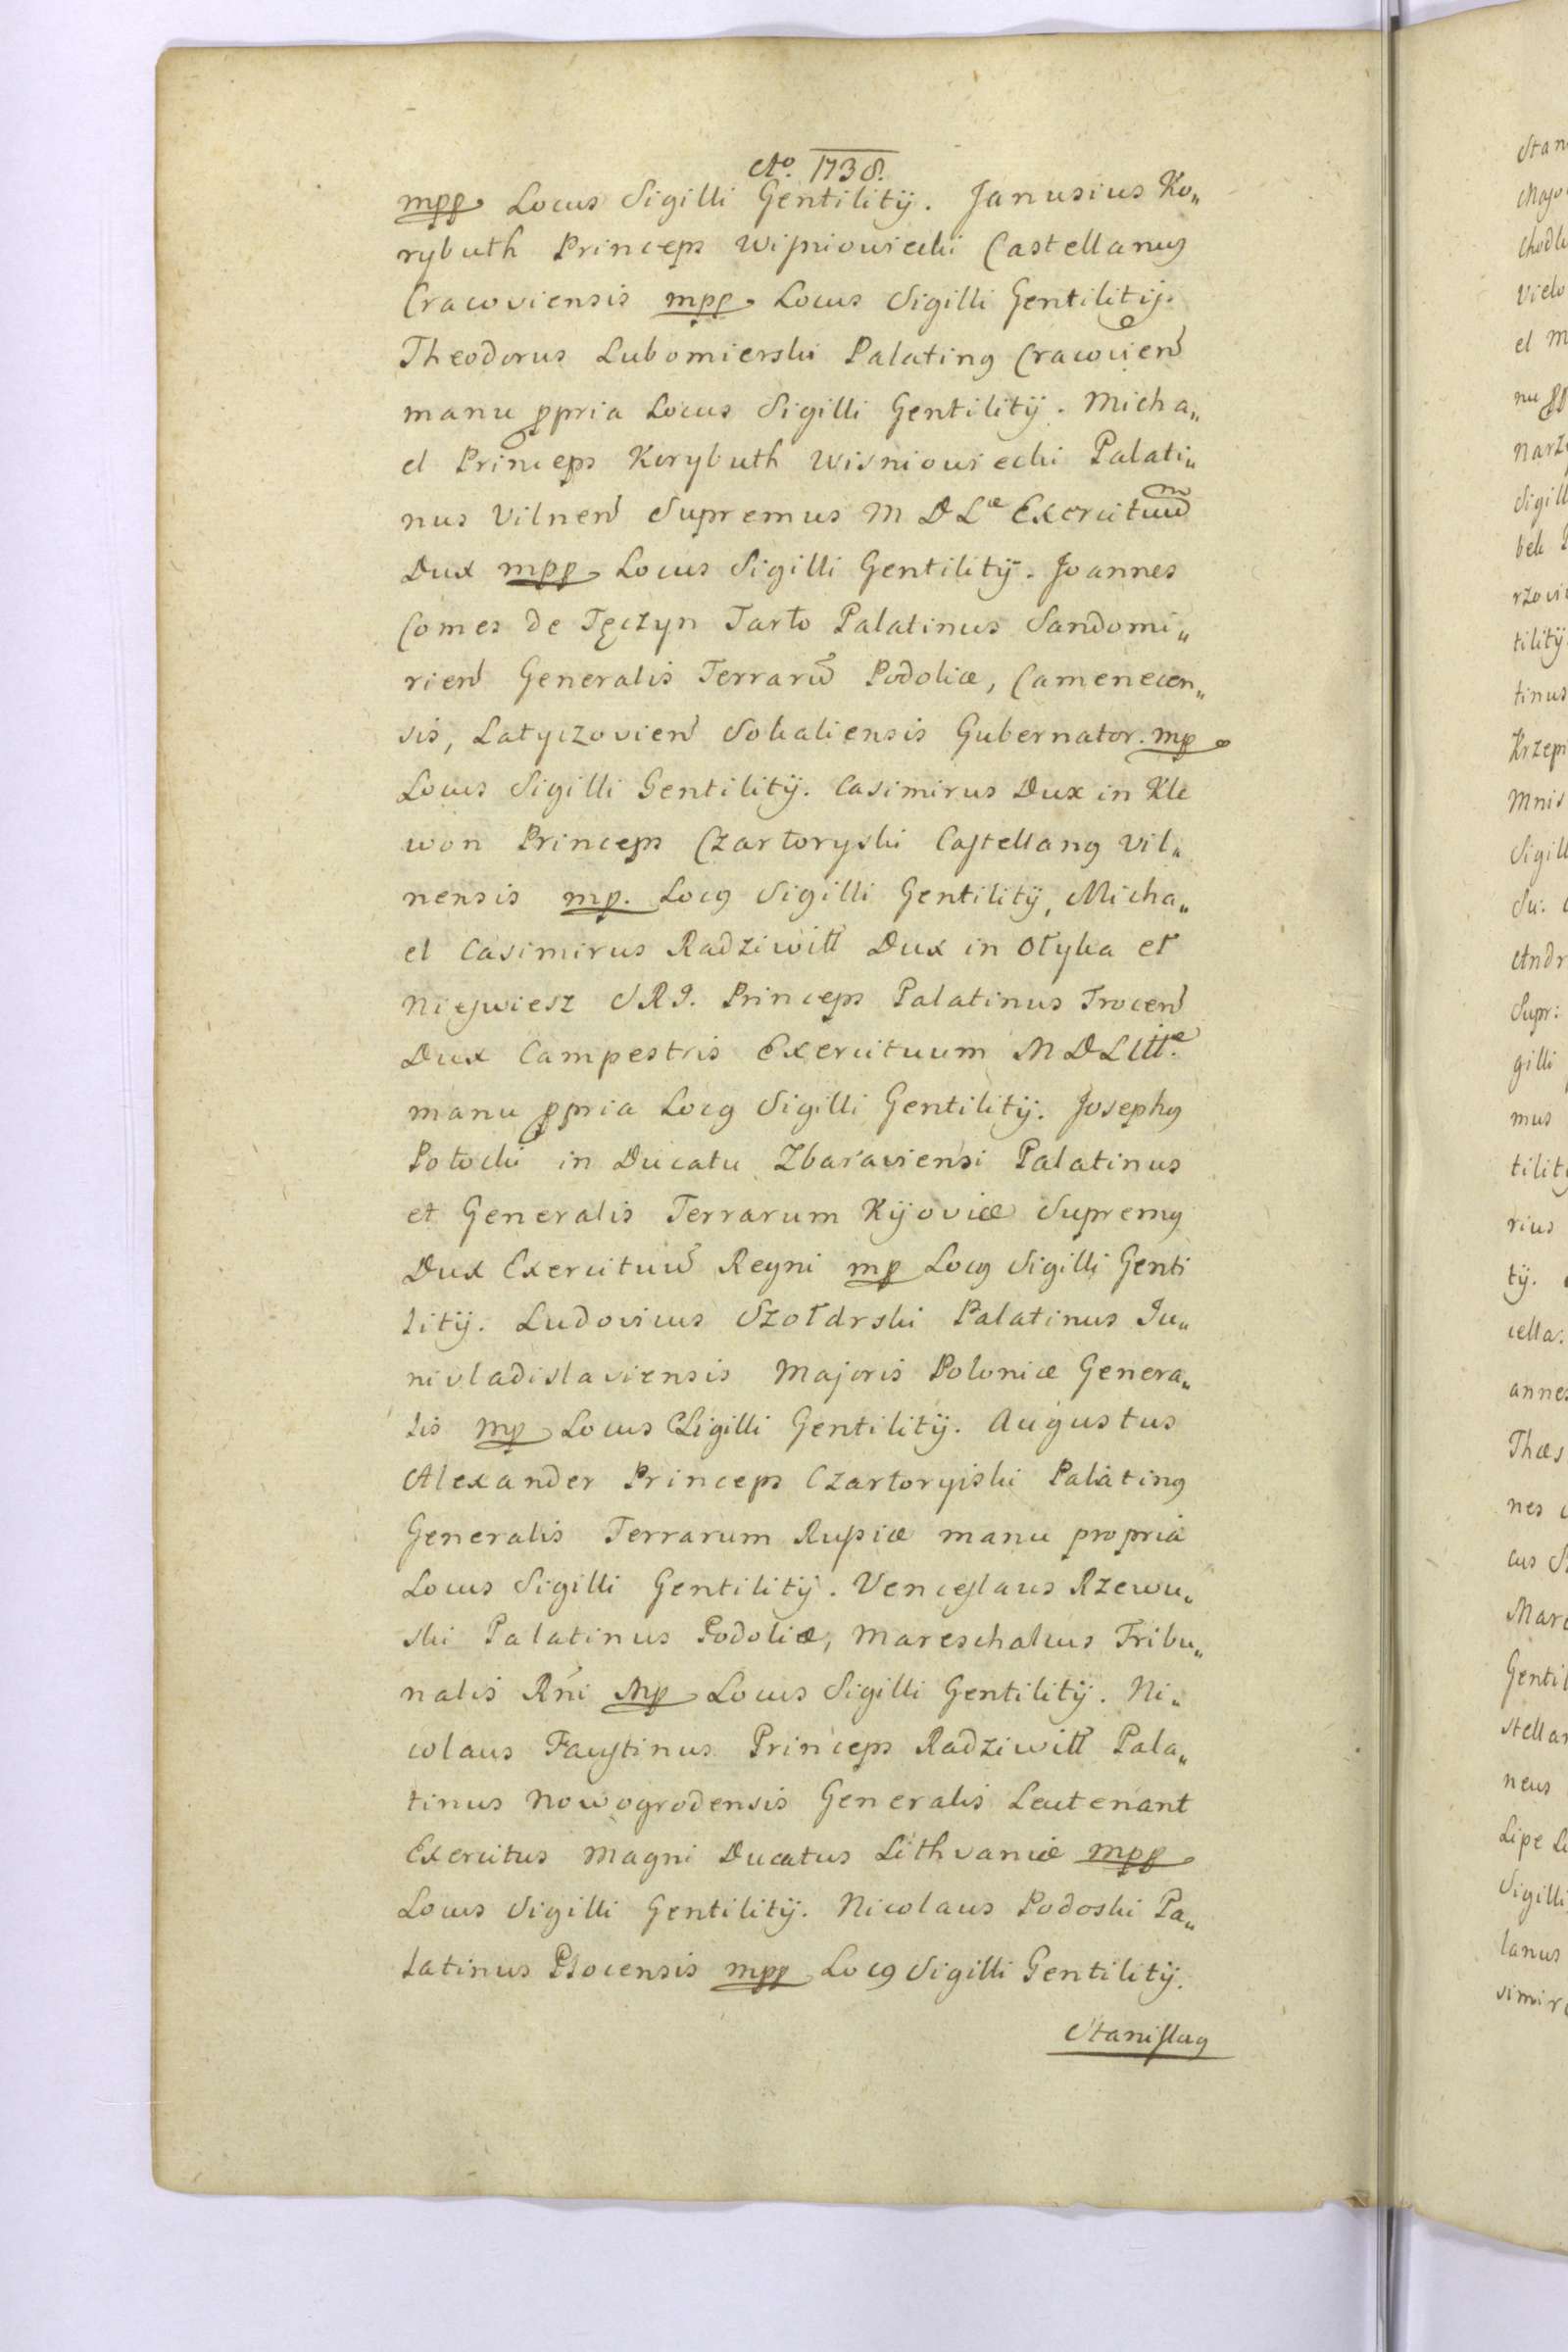 Ao. 1738.
mpp Locus Sigilli Gentilitij. Janusius Ko„
rybuth Princeps Wiſniowiecki Castellanus
Cracoviensis mpp Locus Sigilli Gentilitij.
Theodorus Lubomierski Palatinꝰ Cracovien̄
manu ꝓpria Locus Sigilli Gentilitij. Micha„
el Princeps Korybuth Wisniowiecki Palati„
nus Vilnen̄ Supremus M D Læ Exercituum
Dux mpp Locus Sigilli Gentilitij. Joannes
Comes de Tęczyn Tarło Palatinus Sandomi„
rien̄ Generalis Terrarum̄ Podoliæ, Camenecen„
sis, Latyczovien̄ Sokaliensis Gubernator. mp
Locus Sigilli Gentilitij. Casimirus Dux in Kle
won Princeps Czartoryski Caſtellanꝰ Vil„
nensis mp. Locꝰ Sigilli Gentilitij, Micha„
el Casimirus Radziwiłł Dux in Ołyka et
Nieſwiesz SRI. Princeps Palatinus Trocen̄
Dux Campestris Exercituum M D Littæ.
manu ꝓpria Locꝰ Sigilli Gentilitij. Josephꝰ
Potocki in Ducatu Zbaraviensi Palatinus
et Generalis Terrarum Kijoviæ Supremꝰ
Dux Exercituum̄ Regni mp Locꝰ Sigilli Genti
litij. Ludovicus Szołdrski Palatinus Ju„
nivladislaviensis Majoris Poloniæ Genera„
lis mp Locus Sigilli Gentilitij. Augustus
Alexander Princeps Czartoryiski Palatinꝰ
Generalis Terrarum Ruſsiæ manu propria
Locus Sigilli Gentilitij. Venceſlaus Rzewu„
ski Palatinus Podoliæ, Mareschalcus Tribu„
nalis Rñi Mp Locus Sigilli Gentilitij. Ni„
colaus Fauſtinus Princeps Radziwiłł Pala„
tinus Nowogrodensis Generalis Leutenant
Exercitus Magni Ducatus Lithvaniæ mpp
Locus Sigilli Gentilitij. Nicolaus Podoski Pa„
latinus Plocensis mpp Locꝰ Sigilli Gentilitij.
Staniſlaꝰ